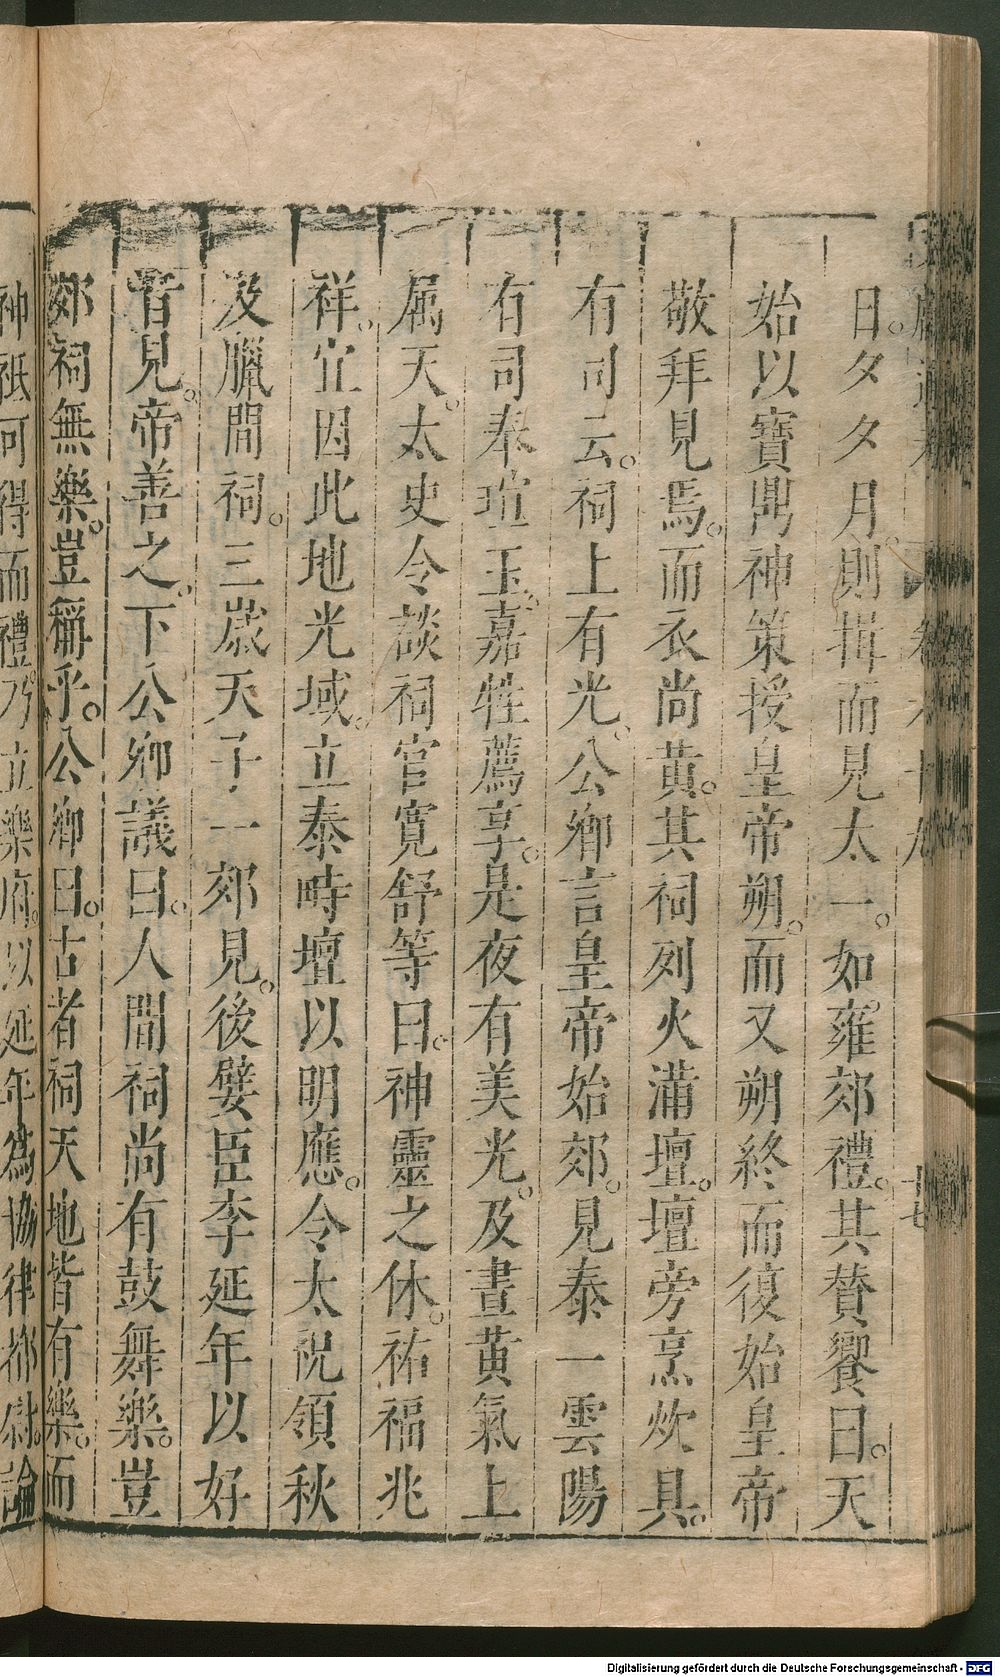 日。夕夕月。則揖而見太一。如雍郊禮。其贊饗曰。天
始以寶鼎神策授皇帝朔。而又朔終而復始皇帝
敬拜見焉。而衣尚黃。其祠列火滿壇。壇旁烹炊具。
有司云。祠上有光。公卿言皇帝始郊。見泰一雲陽
有司奉瑄玉。嘉牲薦享。是夜有美光。及晝黃氣上
属天。太史令談祠官寬舒等曰。神靈之休。祐福兆
祥。宜因此地光域。立泰畤壇以明應。令太祝領秋
及臘間祠。三歲天子一郊見。後嬖臣李延年以好
音見。帝善之。下公卿議曰。人間祠尚有鼓舞樂。豈
郊祠無樂。豈稱乎。公卿曰。古者祠天地皆有樂。而
神祇可得而禮。乃立樂府。以延年為協律都尉。論
Digitalisierung gefördert durch die Deutsche Forschungsgemeinschaft - DFG